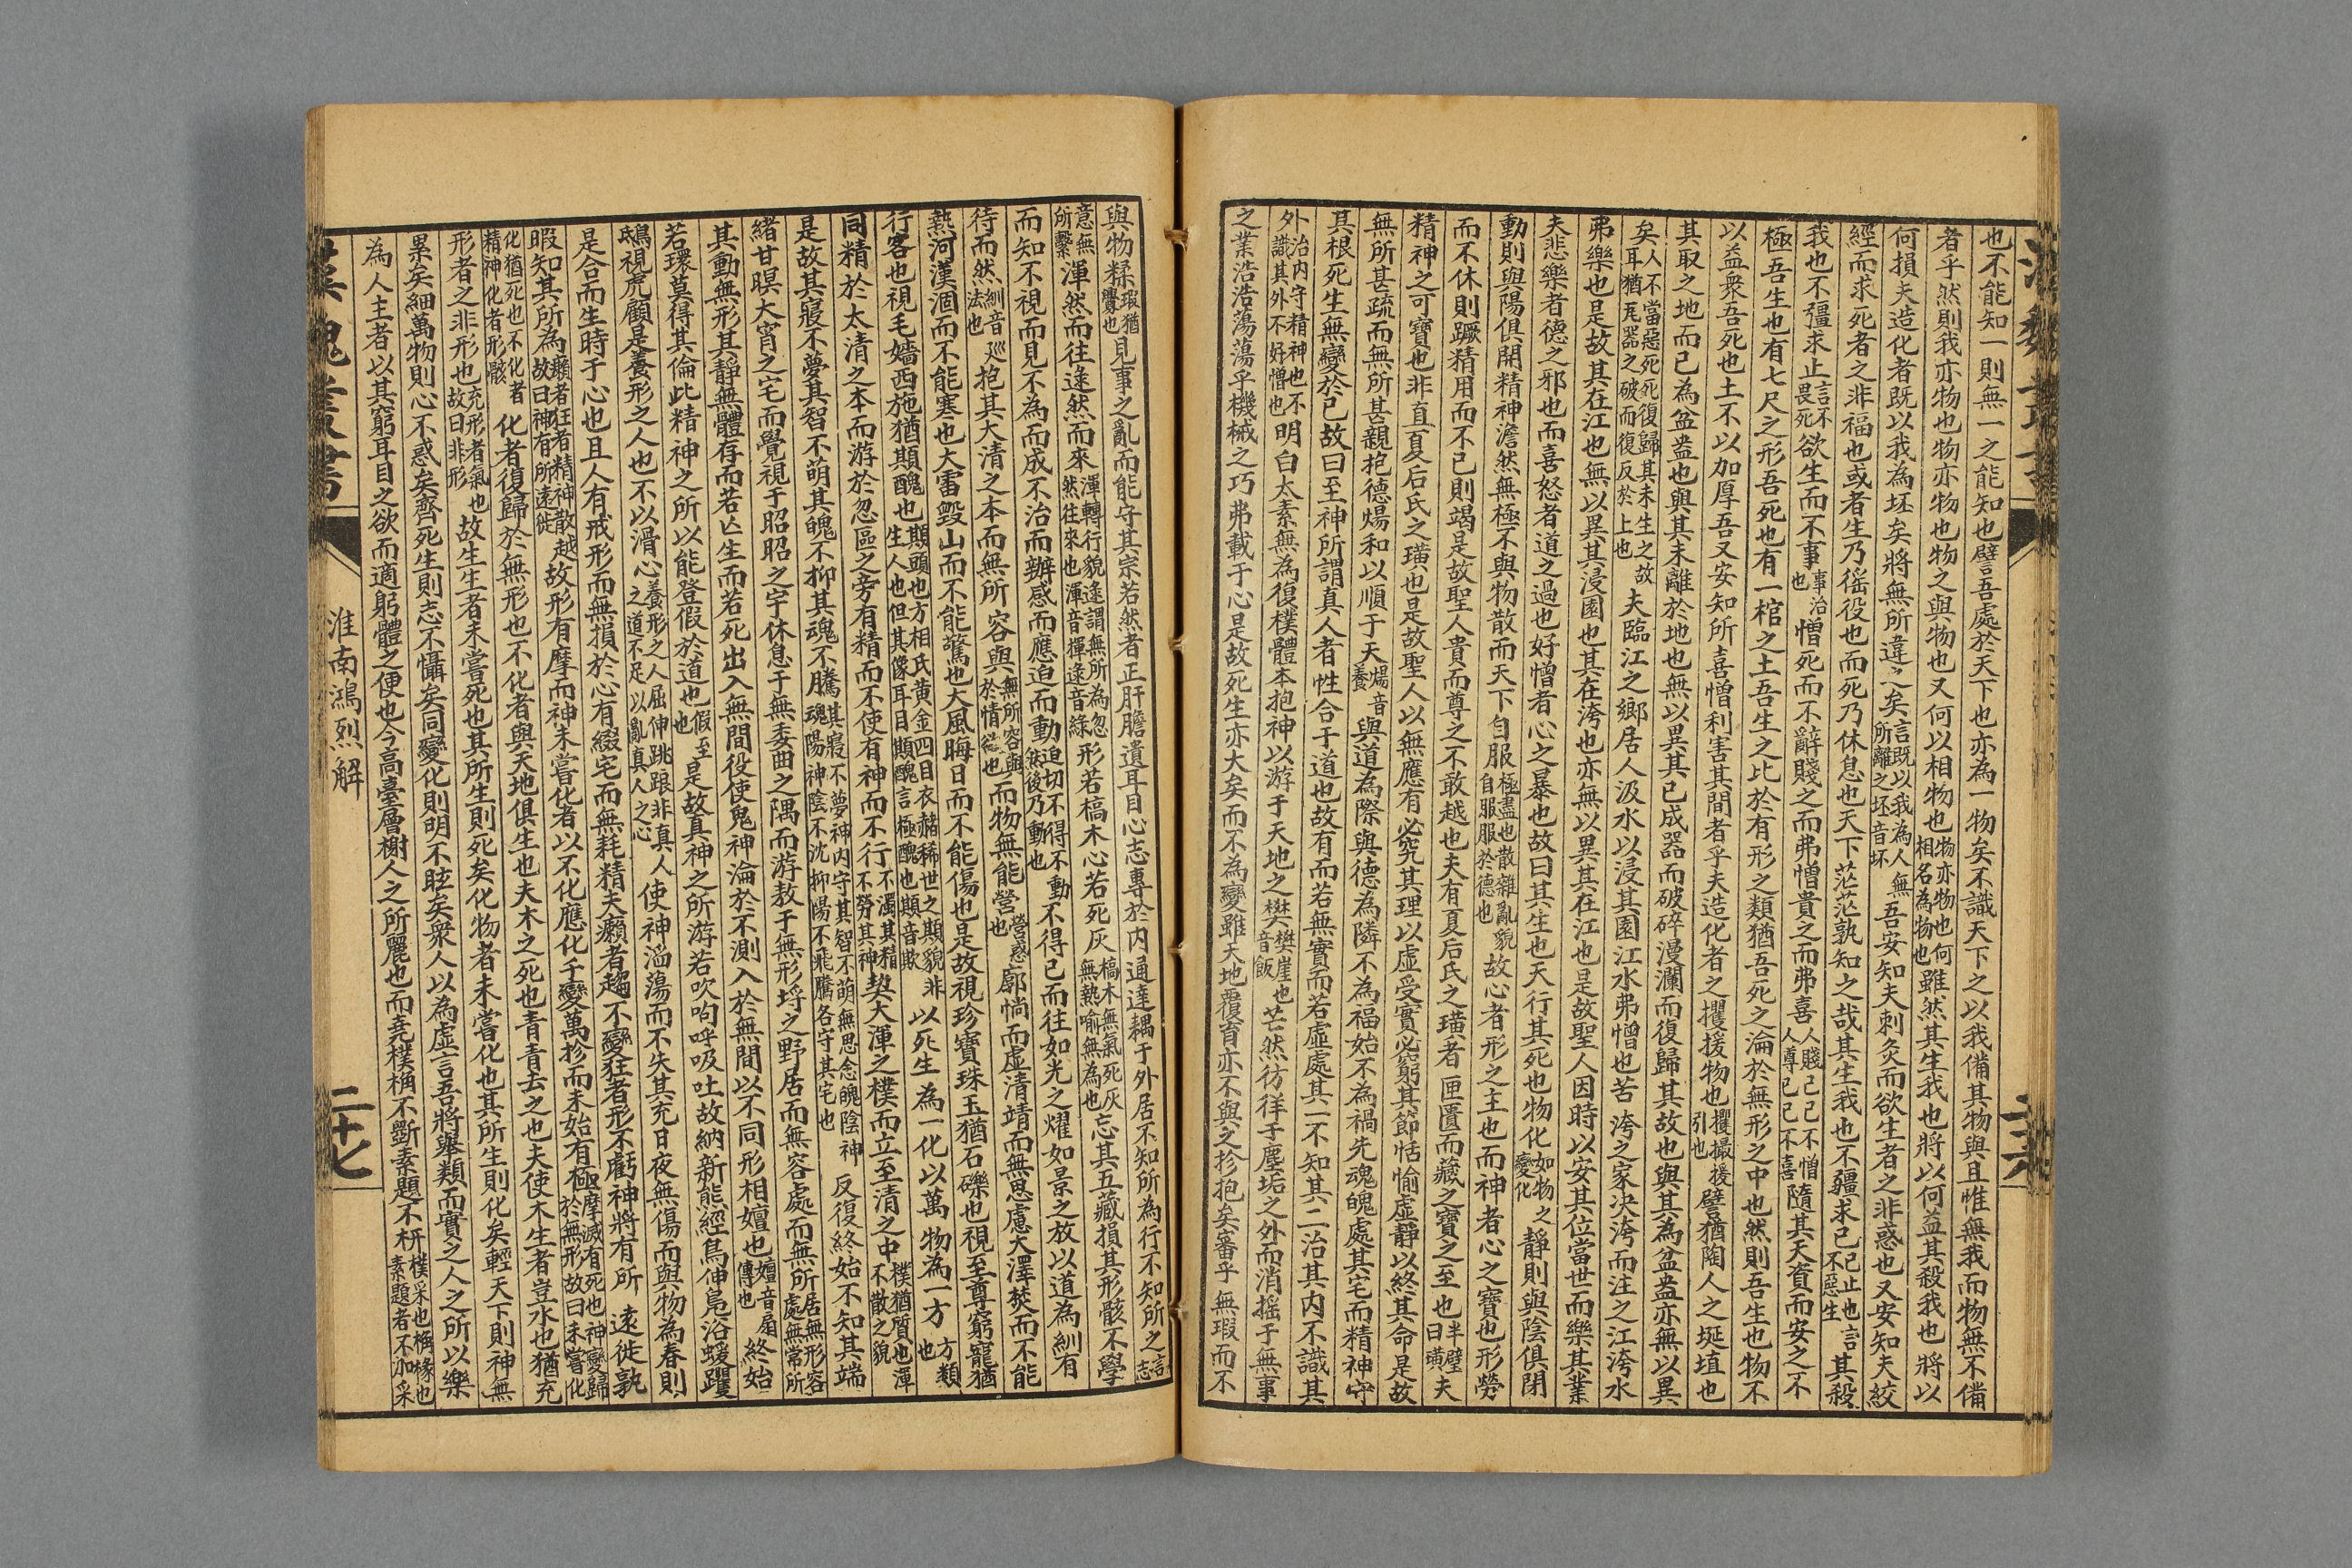 也不能知一則無一之能知也譬吾處於天下也亦為一物矣不識天下之以我備其物與且惟無我而物無不備
者乎然則我亦物也物亦物也物之與物也又何以相物也物亦物也何相名為物也雖然其生我也將以何益其殺我也將以
何損夫造化者既以我為坯矣將無所違之矣言既以我為人無所離之坯音坏吾安知夫刺灸而欲生者之非惑也又安知夫絞
經而求死者之非福也或者生乃徭役也而死乃休息也天下茫茫孰知之哉其生我也不彊求已已止也言不惡生其殺
我也不彊求止言不畏死欲生而不事事治也憎死而不辭賤之而弗憎貴之而弗喜人賤己己不憎人尊己己不喜隨其天資而安之不
極吾生也有七尺之形吾死也有一棺之土吾生之比於有形之類猶吾死之淪於無形之中也然則吾生也物不
以益衆吾死也土不以加厚吾又安知所喜憎利害其間者乎夫造化者之攫援物也攫撮援引也譬猶陶人之埏埴也
其取之地而已為盆盎也與其未離於地也無以異其已成器而破碎漫瀾而復歸其故也與其為盆盎亦無以異
矣人不當惡死死復歸其未生之故耳猶瓦器之破而復反於土也夫臨江之鄉居人汲水以浸其園江水弗憎也苦洿之家决洿而注之江洿水
弗樂也是故其在江也無以異其浸園也其在洿也亦無以異其在江也是故聖人因時以安其位當世而樂其業
夫悲樂者德之邪也而喜怒者道之過也好憎者心之暴也故曰其生也天行其死也物化如物之變化靜則與陰俱閉
動則與陽俱開精神澹然無極不與物散而天下自服極盡也散雜亂貌自服服於德也故心者形之主也而神者心之寶也形勞
而不休則蹶精用而不已則竭是故聖人貴而尊之不敢越也夫有夏后氏之璜者匣匱而藏之寶之至也半璧曰璜夫
精神之可寶也非直夏后氏之璜也是故聖人以無應有必究其理以虛受實必窮其節恬愉虛靜以終其命是故
無所甚疏而無所甚親抱德煬和以順于天煬音養與道為際與德為隣不為福始不為禍先魂魄處其宅而精神守
其根死生無變於已故曰至神所謂真人者性合于道也故有而若無實而若虛處其一不知其二治其内不識其
外治内守精神也不識其外不好憎也明白太素無為復樸體本抱神以游于天地之樊樊崖也音飯芒然彷徉于塵垢之外而消摇于無事
之業浩浩蕩蕩乎機械之巧弗載于心是故死生亦大矣而不為變雖天地覆育亦不與之抮抱矣審乎無瑕而不
二十六
與物糅瑕猶釁也見事之亂而能守其宗若然者正肝膽遺耳目心志專於内通達耦于外居不知所為行不知所之言志
意無所繫渾然而往逯然而來渾轉行貌逯謂無所為忽然往來也渾音揮逯音綠形若槁木心若死灰槁木無氣死灰無熱喻無為也忘其五藏損其形骸不學
而知不視而見不為而成不治而辦感而應迫而動迫切不得不動然後乃動也不得已而往如光之耀如景之放以道為紃有
待而然紃音巡法也抱其大清之本而無所容與無所容與於情欲也而物無能營營惑也廓惝而虛清靖而無思慮大澤焚而不能
熱河漢涸而不能寒也大雷毀山而不能驚也大風晦日而不能傷也是故視珍寶珠玉猶石礫也視至尊窮寵猶
行客也視毛嬙西施猶䫏醜也䫏頭也方相氏黃金四目衣赭稀世之䫏貌非生人也但其像耳目䫏醜言極醜也䫏音欺以死生為一化以萬物為一方方類也
同精於太清之本而游於忽區之旁有精而不使有神而不行不濁其精不勞其神契大渾之樸而立至清之中樸猶質也渾不散之貌
是故其寢不夢其智不萌其魄不抑其魂不騰其寢不夢神内守其智不萌無思念魄陰神魂陽神陰不沈抑陽不飛騰各守其宅也反復終始不知其端
緒甘暝大宵之宅而覺視于昭昭之宇休息于無委曲之隅而游敖于無形埒之野居而無容處而無所居無形容處無常所
其動無形其靜無體存而若亡生而若死出入無間役使鬼神淪於不測入於無間以不同形相嬗也嬗音扇傳也終始
若環莫得其倫此精神之所以能登假於道也假至也是故真神之所游若吹呴呼吸吐故納新熊經鳥伸鳧浴蝯躩
鴟視虎顧是養形之人也不以滑心養形之人屈伸跳踉非真人之道不足以亂真人之心使神滔蕩而不失其充日夜無傷而與物為春則
是合而生時于心也且人有戒形而無損於心有綴宅而無耗精夫癩者趨不變狂者形不虧神將有所遠徙孰
暇知其所為癩者狂者精神散越故曰神有所遠徙故形有摩而神未嘗化者以不化應化千變萬抮而未始有極摩滅有死也神變歸於無形故曰未嘗化
化猶死也不化者精神化者形骸化者復歸於無形也不化者與天地俱生也夫木之死也青青去之也夫使木生者豈水也猶充
形者之非形也充形者氣也故曰非形故生生者未嘗死也其所生則死矣化物者未嘗化也其所生則化矣輕天下則神無
累矣細萬物則心不惑矣齊死生則志不懾矣同變化則明不眩矣衆人以為虛言吾將舉類而實之人之所以樂
為人主者以其窮耳目之欲而適躬體之便也今高臺層榭人之所麗也而堯樸桷不斲素題不枅樸采也桷椽也素題者不加采
漢魏叢書
淮南鴻烈解
二十七